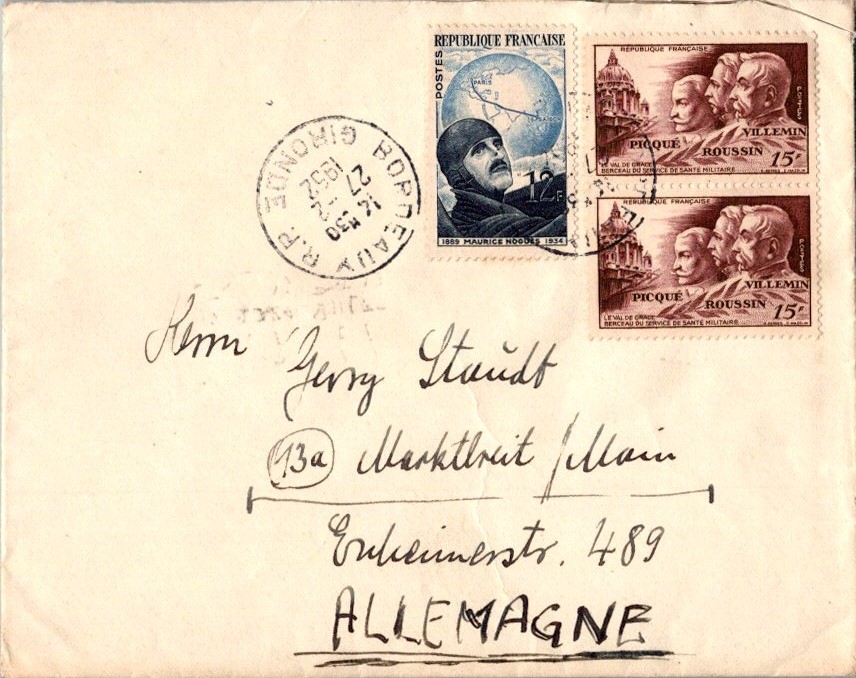 REPUBLIQUE FRANÇAISE
POSTES
PARIS
SAIGON
12F
1889 MAURICE NOGUÈS 1934
REPUBLIQUE FRANÇAISE
POSTES
PICQUÉ ROUSSIN VILLEMIN
15F
LE VAL DE GRACE
BERCEAU DU SERVICE DE SANTÉ MILITAIRE
REPUBLIQUE FRANÇAISE
POSTES
PICQUÉ ROUSSIN VILLEMIN
15F
LE VAL DE GRACE
BERCEAU DU SERVICE DE SANTÉ MILITAIRE
BORDEAUX R.P.
GIRONDE
14 H30
27 - 2
1952
Herrn
Georg Staŭdt
13a Marktbreit / Main
Enheimerstr. 489
ALLEMAGNE